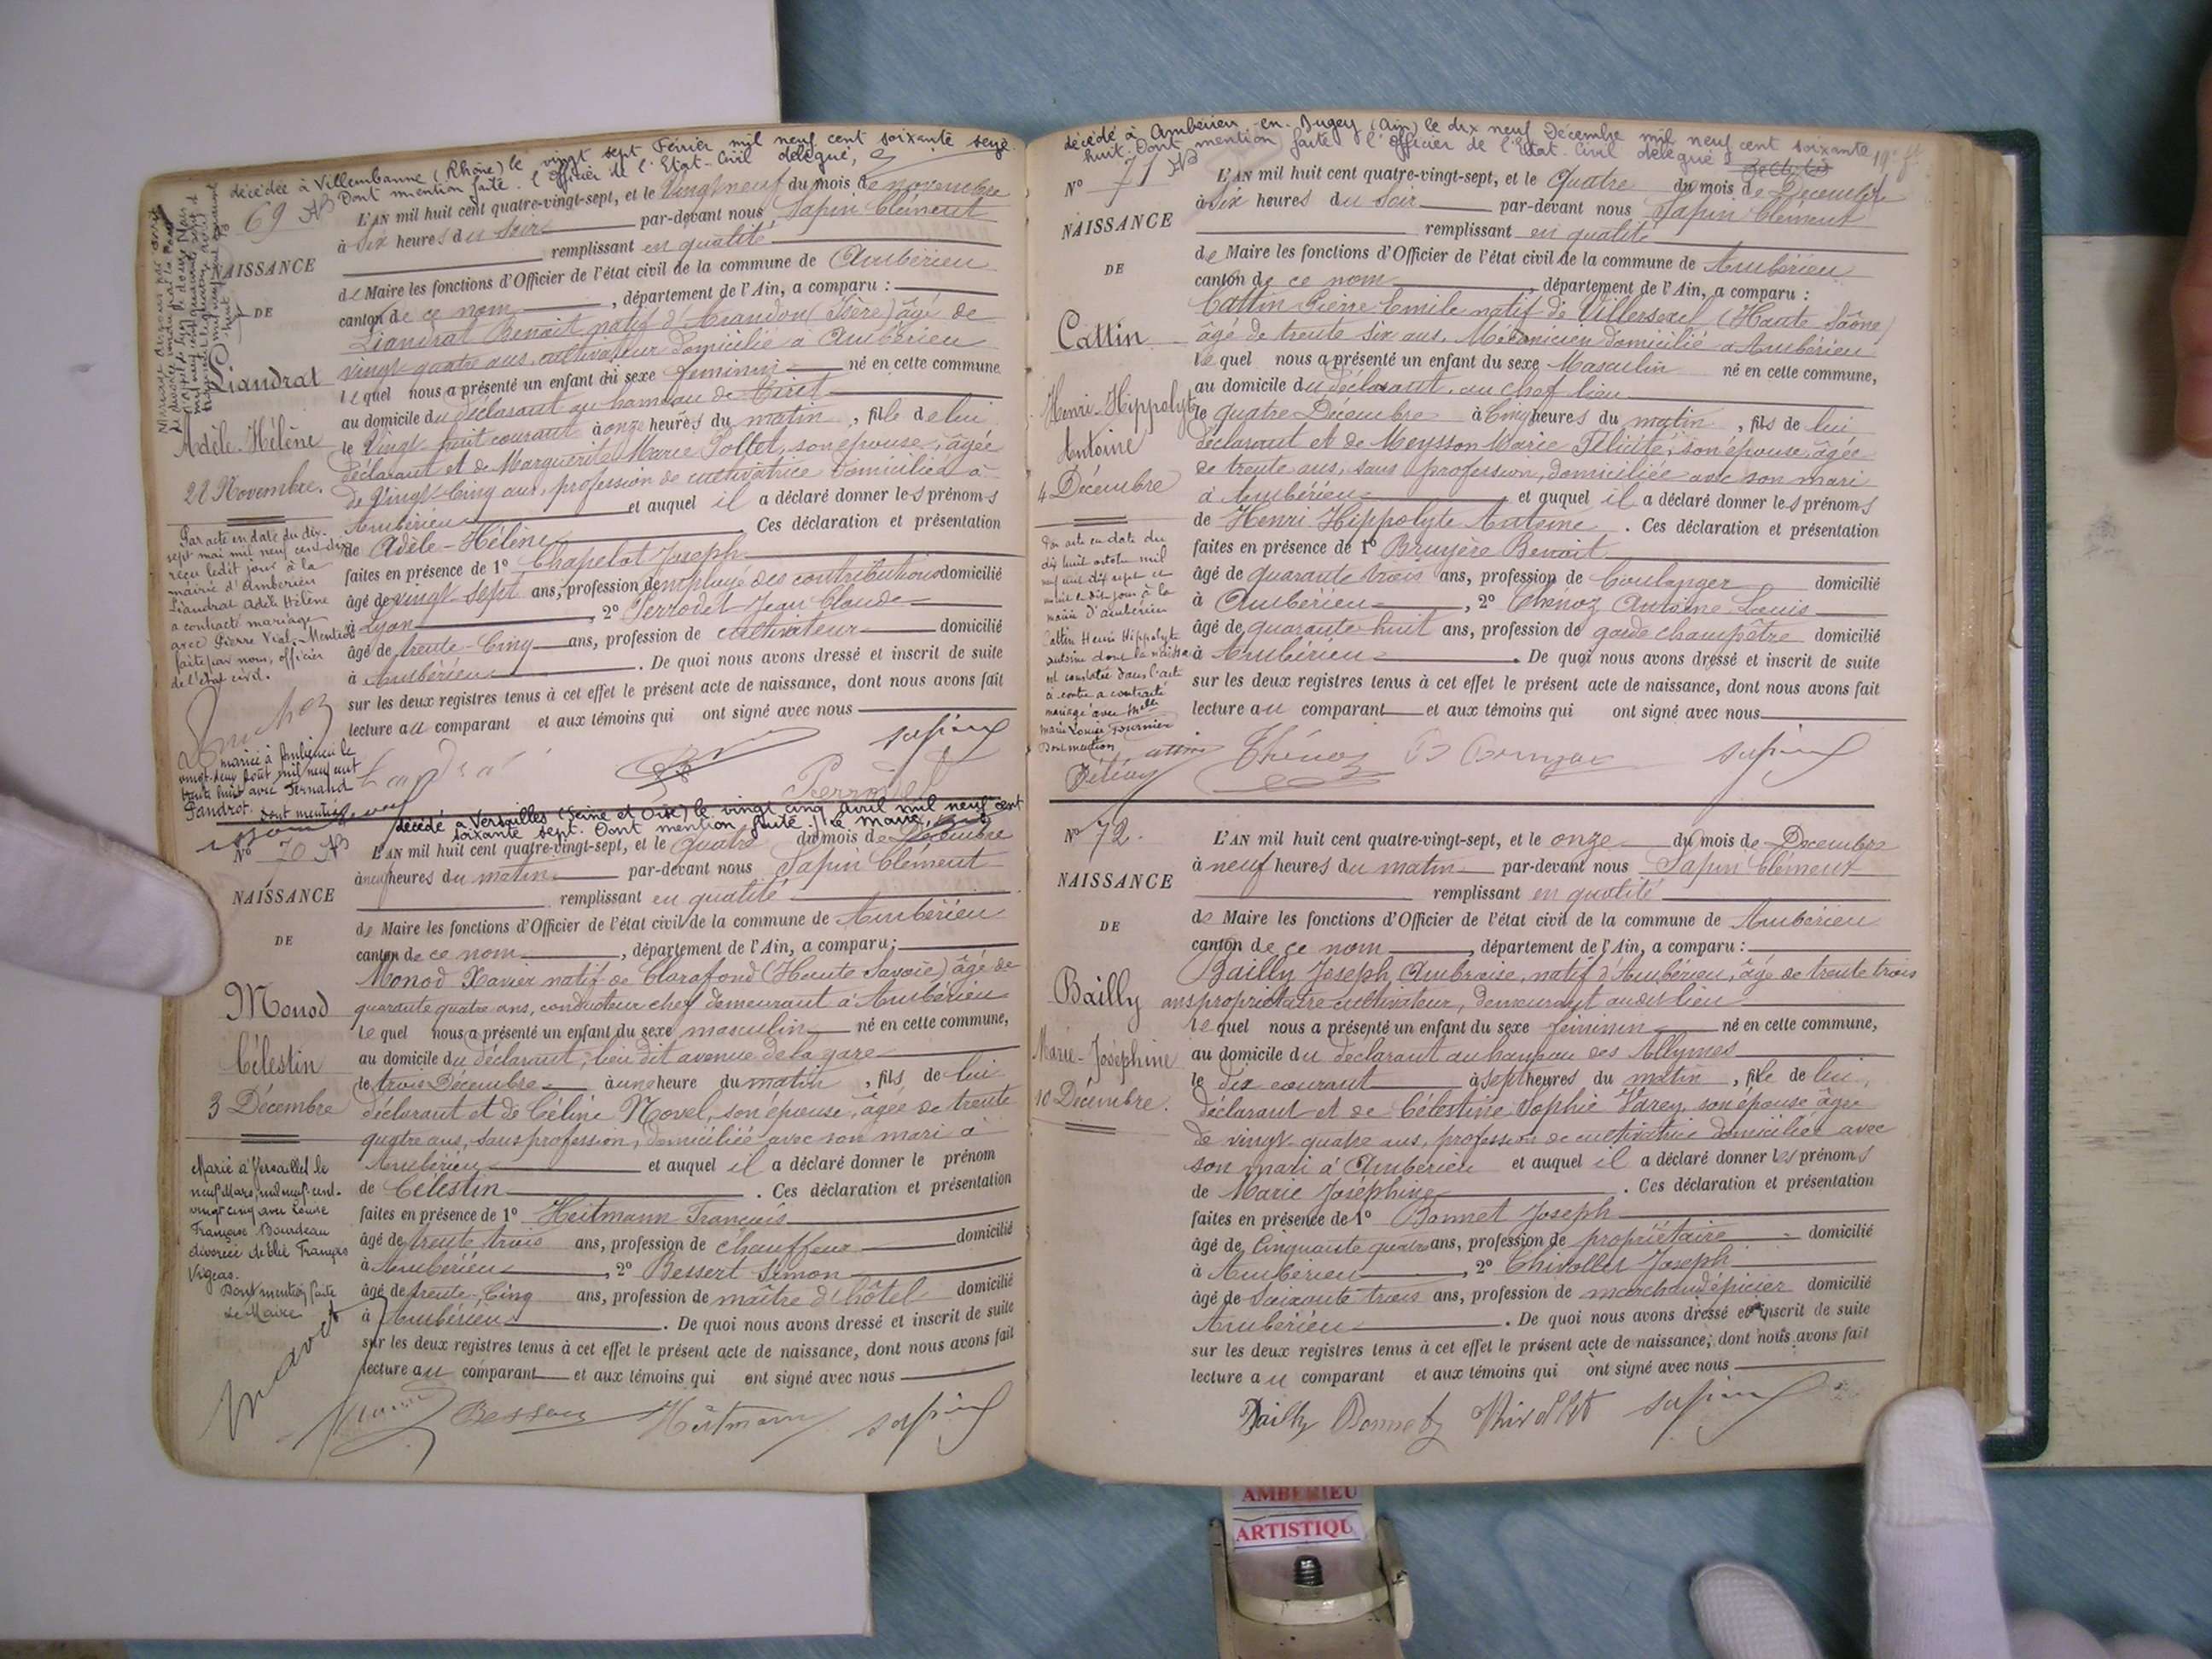 décédée à Villeurbanne (Rhône) le vingt sept Février mil neuf cent soixante seize.
Dont mention faite. l'Officier de l'Etat-Civil délégué,
69
NAISSANCE
DE
Liandrat
Adèle-Hélène
28 Novembre.
Par acte en date du dix-
sept mai mil neuf cent dix
reçu ledit jour à la
mairie d'Ambérieu
Liandrat Adèle Hélène
a contracté mariage
avec Pierre Vial. Mention
faite par nous, officier
de l'état civil.
mariée à Ambérieu le
vingt-deux août mil neuf cent
trente huit avec Fernand
Pandrot. Dont mention
L'AN mil huit cent quatre-vingt-sept, et le Vingt neuf du mois de novembre
à Six heures du soir par-devant nous Sapin Clément
remplissant en qualité
de Maire les fonctions d'Officier de l'état civil de la commune de Ambérieu
canton de ce nom, département de l'Ain, a comparu :
Liandrat Benoit natif d'Arandon (Isère) âgé de
vingt quatre ans, cultivateur domicilié à Ambérieu
lequel nous a présenté un enfant du sexe feminin né en cette commune
au domicile du déclarant au hameau de Tiret
le Vingt huit courant à onze heures du matin, fille de lui
déclarant et de Marguerite Marie Pollet, son épouse, âgée
de Vingt-Cinq ans, profession de cultivatrice domiciliée à
Ambérieu et auquel il a déclaré donner les prénoms
de Adèle-Hélène. Ces déclaration et présentation
faites en présence de 1º Chapelat Joseph
âgé de vingt-sept ans, profession d'employé des contributions domicilié
à Lyon, 2º Perrodet Jean Claude
âgé de trente-Cinq ans, profession de cultivateur domicilié
à Ambérieu. De quoi nous avons dressé et inscrit de suite
sur les deux registres tenus à cet effet le présent acte de naissance, dont nous avons fait
lecture au comparant et aux témoins qui ont signé avec nous
Perrodet
Sapin
décédé à Versailles (Seine et Oise) le vingt cinq Avril mil neuf cent
soixante sept. Dont mention faite. Le Maire,
Nº 70
NAISSANCE
DE
Monod
Célestin
3 Décembre
Marié à Versailles le
neuf Mars mil neuf cent
vingt cinq avec Louise
Françoise Bourdeau
divorcée de Elie François
Vigeas.
Dont mention faite
Le Maire
L'AN mil huit cent quatre-vingt-sept, et le Quatre du mois de Décembre
à neuf heures du matin par-devant nous Sapin Clément
remplissant en qualité
de Maire les fonctions d'Officier de l'état civil de la commune de Ambérieu
canton de ce nom, département de l'Ain, a comparu ;
Monod Xavier natif de Clarafond (Haute Savoie) âgé de
quarante quatre ans, conducteur chef demeurant à Ambérieu
lequel nous a présenté un enfant du sexe masculin né en cette commune,
au domicile du déclarant, lieu dit avenue de la gare
le trois Décembre à une heure du matin, fils de lui
déclarant et de Céline Novel, son épouse, âgée de trente
quatre ans, sans profession, domiciliée avec son mari à
Ambérieu et auquel il a déclaré donner le prénom
de Célestin. Ces déclaration et présentation
faites en présence de 1º Heitmann François
âgé de trente trois ans, profession de chauffeur domicilié
à Ambérieu, 2º Bessert Simon
âgé de trente-Cinq ans, profession de maître d'hôtel domicilié
à Ambérieu. De quoi nous avons dressé et inscrit de suite
sur les deux registres tenus à cet effet le présent acte de naissance, dont nous avons fait
lecture au comparant et aux témoins qui ont signé avec nous
Heitmann Sapin
décédé à Ambérieu-en-Bugey (Ain) le dix neuf Décembre mil neuf cent soixante
huit. Dont mention faite l'Officier de l'Etat-Civil délégué
Nº 71
NAISSANCE
DE
Cattin
Henri-Hippolyte
Antoine
4 Décembre
Par acte en date du
dix huit octobre mil
neuf cent dix sept et
reçu le dit jour à la
mairie d'Ambérieu
Cattin Henri Hippolyte
Antoine dont la naissance
est constatée dans l'acte
ci-contre a contracté
mariage avec Melle
Marie Louise Fournier
Dont mention
L'AN mil huit cent quatre-vingt-sept, et le Quatre du mois de Décembre
à Six heures du Soir par-devant nous Sapin Clément
remplissant en qualité
de Maire les fonctions d'Officier de l'état civil de la commune de Ambérieu
canton de ce nom, département de l'Ain, a comparu :
Cattin Pierre Emile natif de Villersexel (Haute Saône)
âgé de trente Six ans, Mécanicien domicilié à Ambérieu
lequel nous a présenté un enfant du sexe Masculin né en cette commune,
au domicile du déclarant, au chef lieu
le quatre Décembre à Cinq heures du matin, fils de lui
déclarant et de Meysson Marie Félicité, son épouse, âgée
de trente ans, sans profession, domiciliée avec son mari
à Ambérieu et auquel il a déclaré donner les prénoms
de Henri Hippolyte Antoine. Ces déclaration et présentation
faites en présence de 1º Bruyère Benoit
âgé de quarante trois ans, profession de boulanger domicilié
à Ambérieu, 2º Thénoz Antoine Louis
âgé de quarante-huit ans, profession de garde champêtre domicilié
à Ambérieu. De quoi nous avons dressé et inscrit de suite
sur les deux registres tenus à cet effet le présent acte de naissance, dont nous avons fait
lecture au comparant et aux témoins qui ont signé avec nous
Thénoz Sapin
Nº 72.
NAISSANCE
DE
Bailly
Marie-Joséphine
10 Décembre.
L'AN mil huit cent quatre-vingt-sept, et le onze du mois de Decembre
à neuf heures du matin par-devant nous Sapin Clément
remplissant en qualité
de Maire les fonctions d'Officier de l'état civil de la commune de Ambérieu
canton de ce nom, département de l'Ain, a comparu :
Bailly Joseph Ambroise, natif d'Ambérieu, âgé de trente trois
ans propriétaire cultivateur, demeurant audit lieu
lequel nous a présenté un enfant du sexe feminin né en cette commune,
au domicile du déclarant au hameau des Allymes
le dix courant à sept heures du matin, fille de lui
déclarant et de Célestine Sophie Varey, son épouse âgée
de vingt-quatre ans, profession de cultivatrice domiciliée avec
son mari à Ambérieu et auquel il a déclaré donner les prénoms
de Marie Joséphine. Ces déclaration et présentation
faites en présence de 1º Bonnet Joseph
âgé de Cinquante quatre ans, profession de propriétaire domicilié
à Ambérieu, 2º Chivollet Joseph
âgé de Soixante trois ans, profession de marchand épicier domicilié
Ambérieu. De quoi nous avons dressé et inscrit de suite
sur les deux registres tenus à cet effet le présent acte de naissance, dont nous avons fait
lecture au comparant et aux témoins qui ont signé avec nous
Bailly Bonnet Sapin
AMBERIEU
ARTISTIQU